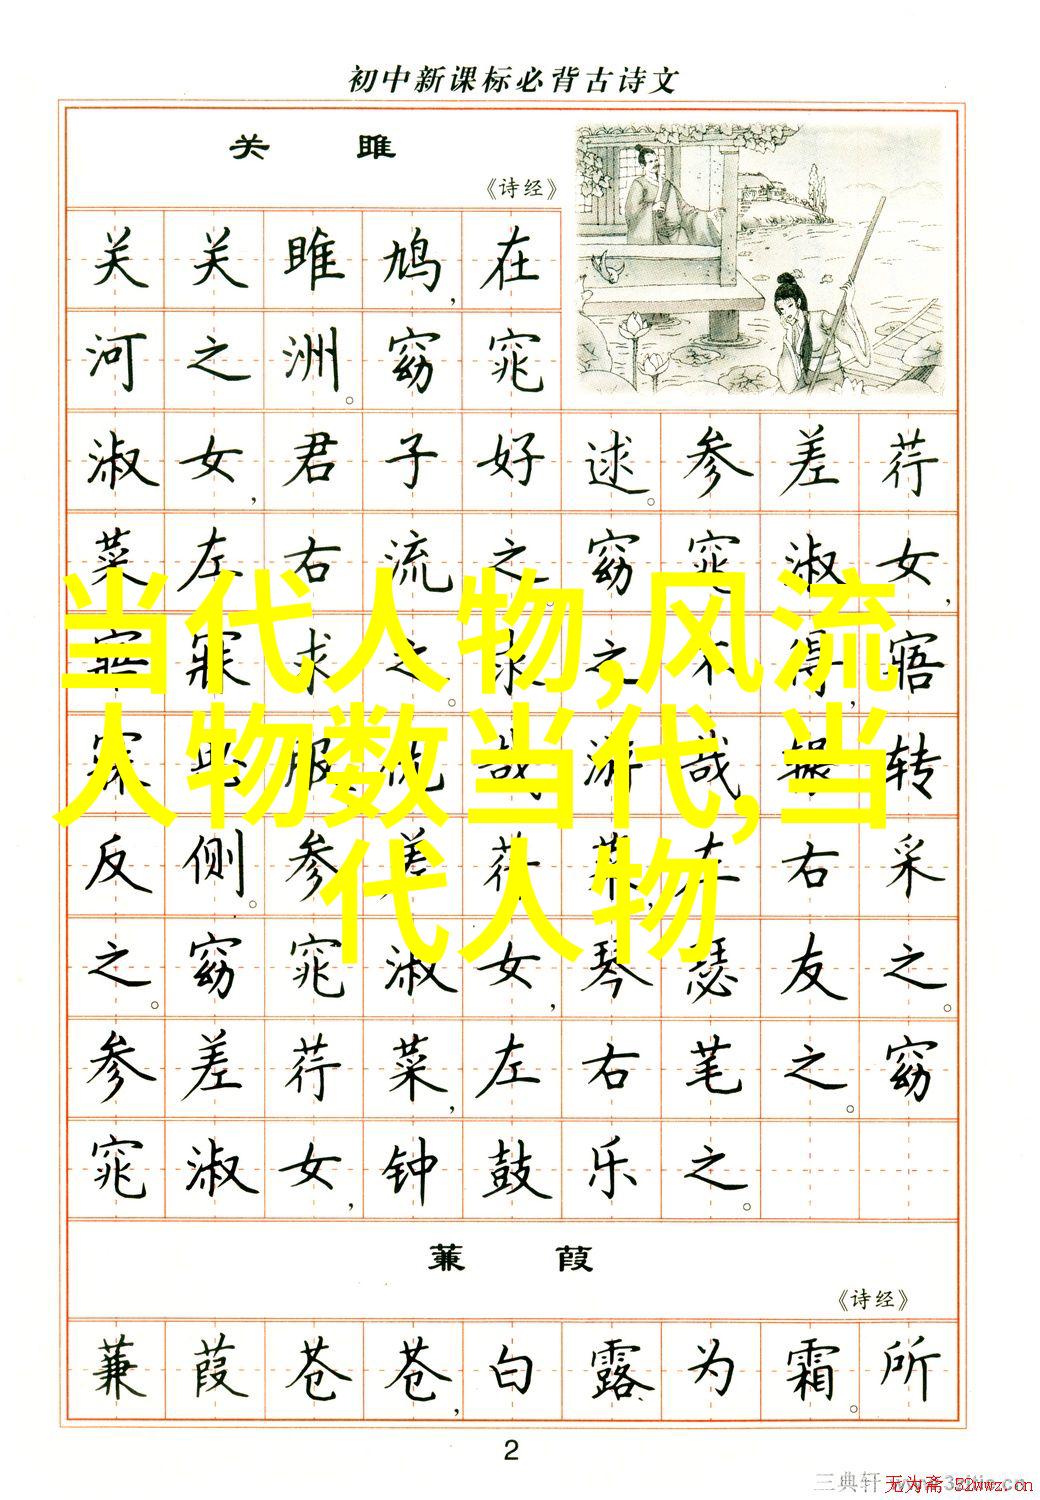 初中新课标必背古诗文
关 雎
《诗经》
关关雎鸠,在
河之洲。窈窕
淑女,君子好逑。参差荇
菜左右流之。窈窕淑女,
寤寐求之。求之不得,寤
寐思服。悠哉游哉辗转
反侧。参差荇菜,左右采
之。窈窕淑女,琴瑟友之。
参差荇菜,左右芼之。窈
窕淑女,钟鼓乐之。
当代人物,风流
人物数当代,当
代人物
蒹 葭
《诗经》
蒹葭苍苍,白露为霜。所
2
三典轩
无为斋 52wwz.cn